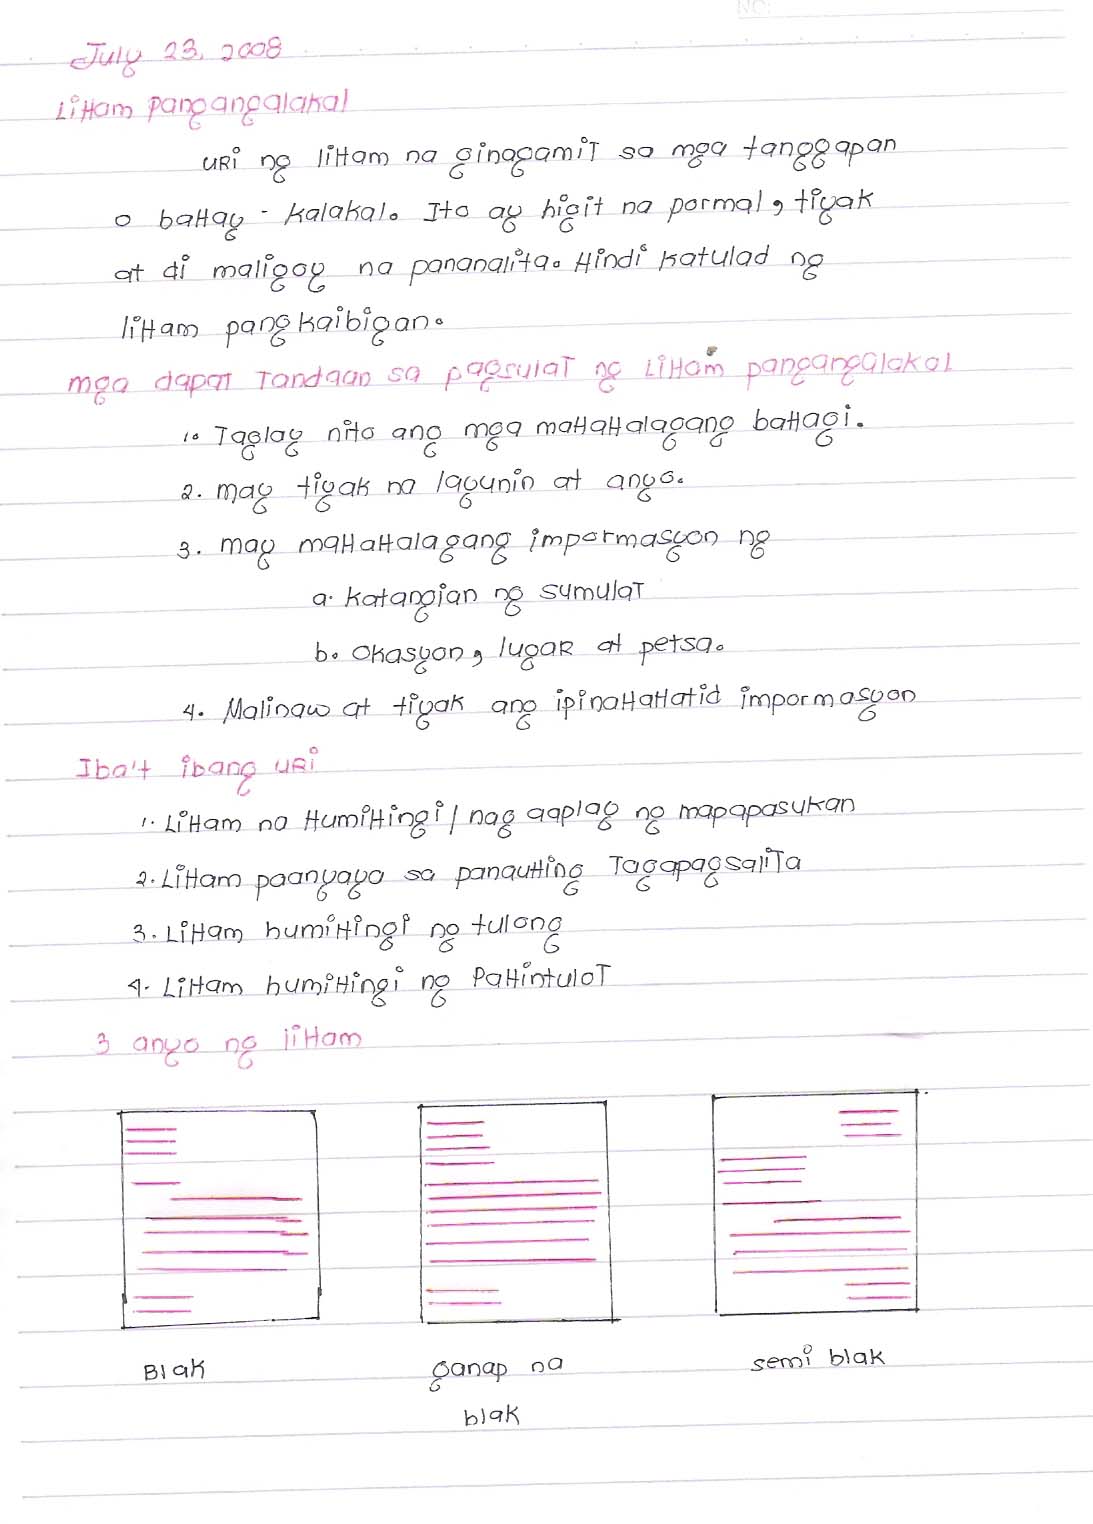 NO:
July 23, 2008
Liham pangangalakal
uri ng liham na ginagamit sa mga tanggapan
o bahay - kalakal. Ito ay higit na pormal, tiyak
at di maligoy na pananalita. Hindi katulad ng
liham pangkaibigan.
mga dapat Tandaan sa pagsulat ng Liham pangangalakal
1. Taglay nito ang mga mahahalagang bahagi.
2. may tiyak na layunin at anyo.
3. may mahahalagang impormasyon ng
a. katangian ng sumulat
b. okasyon, lugar at petsa.
4. Malinaw at tiyak ang ipinahahatid impormasyon
Iba't ibang uri
1. Liham na Humihingi / nag aaplay ng mapapasukan
2. Liham paanyaya sa panauhing Tagapagsalita
3. Liham humihingi ng tulong
4. Liham humihingi ng Pahintulot
3 anyo ng liham
Blak
ganap na
blak
semi blak